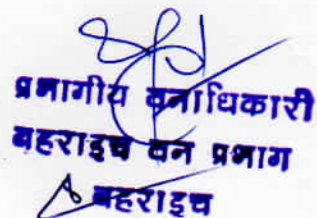 प्रभागीय वनाधिकारी
बहराइच वन प्रभाग
बहराइच